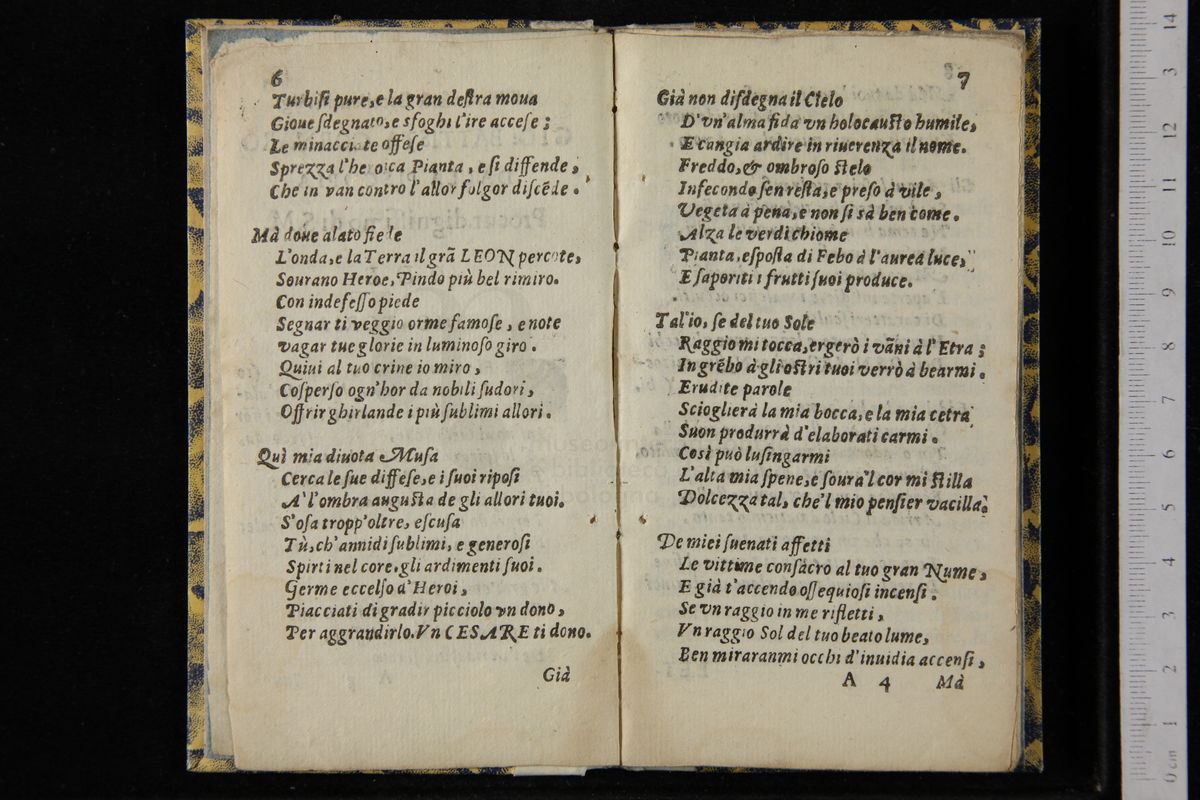 6
Turbiſi pure, e la gran deſtra moua
Gioue ſdegnato, e sfoghi l'ire acceſe;
Le minacciate offeſe
Sprezza l'heroica Pianta, e ſi diffende,
Che in van contro l'allor folgor diſcẽde.
Mà doue alato fiede
L'onda, e la Terra il grã LEON percote,
Sourano Heroe, Pindo più bel rimiro.
Con indefeſſo piede
Segnar ti veggio orme famoſe, e note
vagar tue glorie in luminoſo giro.
Quiui al tuo crine io miro,
Coſperſo ogn'hor da nobili ſudori,
Offrir ghirlande i più ſublimi allori.
Quì mia diuota Muſa
Cerca le ſue diffeſe, e i ſuoi ripoſi
A' l'ombra auguſta de gli allori tuoi.
S'oſa tropp'oltre, eſcuſa
Tù, ch'annidi ſublimi, e generoſi
Spirti nel core, gli ardimenti ſuoi.
Germe eccelſo d'Heroi,
Piacciati di gradir picciolo vn dono,
Per aggrandirlo. Vn CESARE ti dono.
Già
7
Già non diſdegna il Cielo
D'vn'alma fida vn holocauſto humile,
E cangia ardire in riuerenza il nome.
Freddo, & ombroſo ſtelo
Infecondo ſen reſta, e preſo à vile,
Vegeta à pena, e non ſi sà ben come.
Alza le verdi chiome
Pianta, eſpoſta di Febo à l'aurea luce,
E ſaporiti i frutti ſuoi produce.
Tal'io, ſe del tuo Sole
Raggio mi tocca, ergerò i vãni à l'Etra;
In grẽbo à gli oſtri tuoi verrò à bearmi.
Erudite parole
Scioglierà la mia bocca, e la mia cetra
Suon produrrà d'elaborati carmi.
Così può luſingarmi
L'alta mia ſpene, e ſoura'l cor mi ſtilla
Dolcezza tal, che'l mio penſier vacilla.
De miei ſuenati affetti
Le vittime conſacro al tuo gran Nume,
E già t'accendo oſſequioſi incenſi.
Se vn raggio in me rifletti,
Vn raggio Sol del tuo beato lume,
Ben miraranmi occhi d'inuidia accenſi,
A 4 Mà